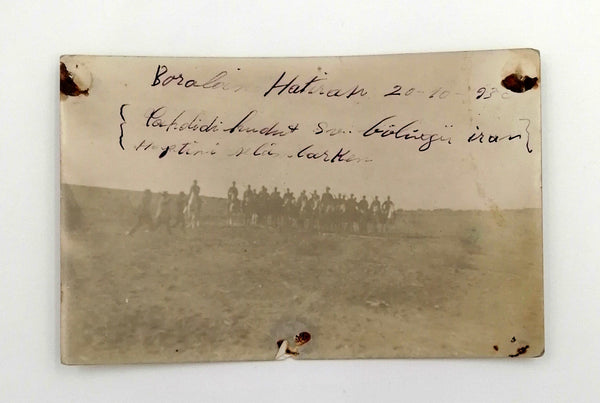 Boralan Hatırası 20-10-93
{ Tahdidi hudut Sv. bölüğü iran }
Heyetini selâmlarken